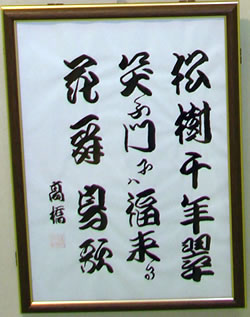 松樹千年翠
笑ふ門には福来る
花舞鳥歌
高橋